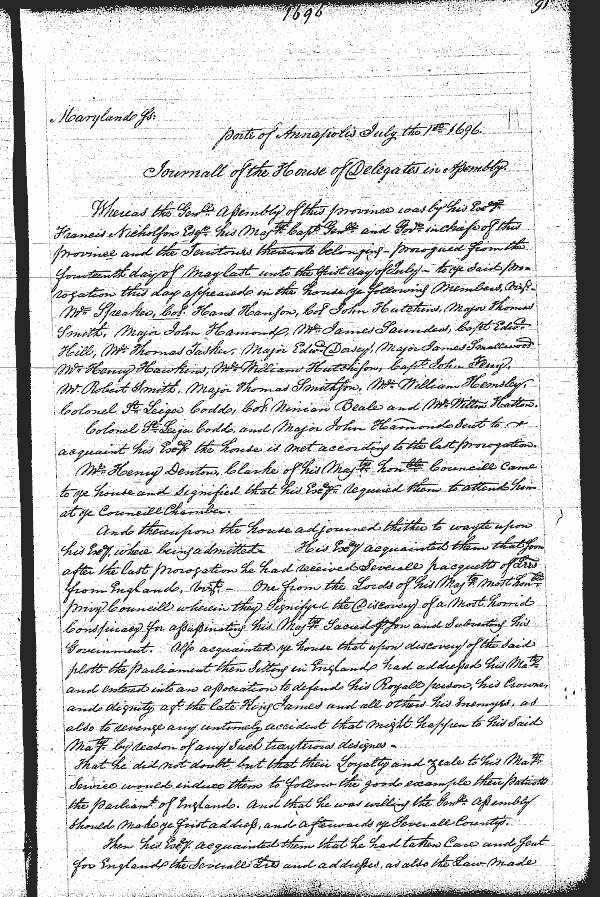 1696
91
Maryland ss:
Porte of Annapolis July the 1st 1696.
Journall of the House of Delegates in Assembly.
Whereas the Genll Assembly of this province was by his Excy
Francis Nicholson Esqr his Majtys Capt Genll and Govr in cheife of this
province and the Territorys thereunto belonging prorogued from the
fourteenth day of May last unto the first day of July - to ye said pro-
rogation this day appeared in the house ye following Members, Vizt.
Mr Speaker, Col. Hans Hanson, Col John Hutchins, Major Thomas
Smith, Major John Hamond, Mr James Saunders, Capt Edwd
Hill, Mr Thomas Tasker, Major Edwd Dorsey, Major James Smallwood
Mr Henry Hawkins, Mr William Hutchison, Capt John
Mr Robert Smith, Major Thomas Smithson, Mr William Hemsley,
Colonel St Leiger Codde, Col. Ninian Beale and Mr Willm Hatton.
Colonel St Leiger Codde, and Major John Hammond Sent to
acquaint his Excy the house is met according to the last prorogation.
Mr Henry Denton, Clarke of his Majtys honble Councill came
to ye house and signified that his Excy required them to attend him
at ye Councill Chamber.
And thereupon the house adjourned thither to wayte upon
his Excy, where being admitted His Excy acquainted them that soon
after the last Prorogation he had received Severall pacquetts of Lres
from England, Vizt. - One from the Lords of his Majtys most honble
Privy Councill wherein they Signifyed the Discovery of a Most horrid
Conspiracy for assassinating his Majtys Sacred pson and Subverting his
Government. Also acquainted ye house that upon discovery of the said
plott the Parliament then Sitting in England had addressed his Maty
and entered into an association to defend his Royall person, his Crowne,
and dignity agt the late King James and all others his Enemyes, as
also to revenge any untimely accident that might happen to his Said
Maty by reason of any such trayterous designes -
That he did not doubt, but that their Loyalty and zeale to his Matys
Service would induce them to follow the good example their patriots
the Parliamt of England. And that he was willing the Genll Assembly
should make ye first address, and afterwards ye Severall Countys.
Then his Excy acquainted them that he had taken Care and Sent
for England the Severall Lres and addresses, as also the Law made